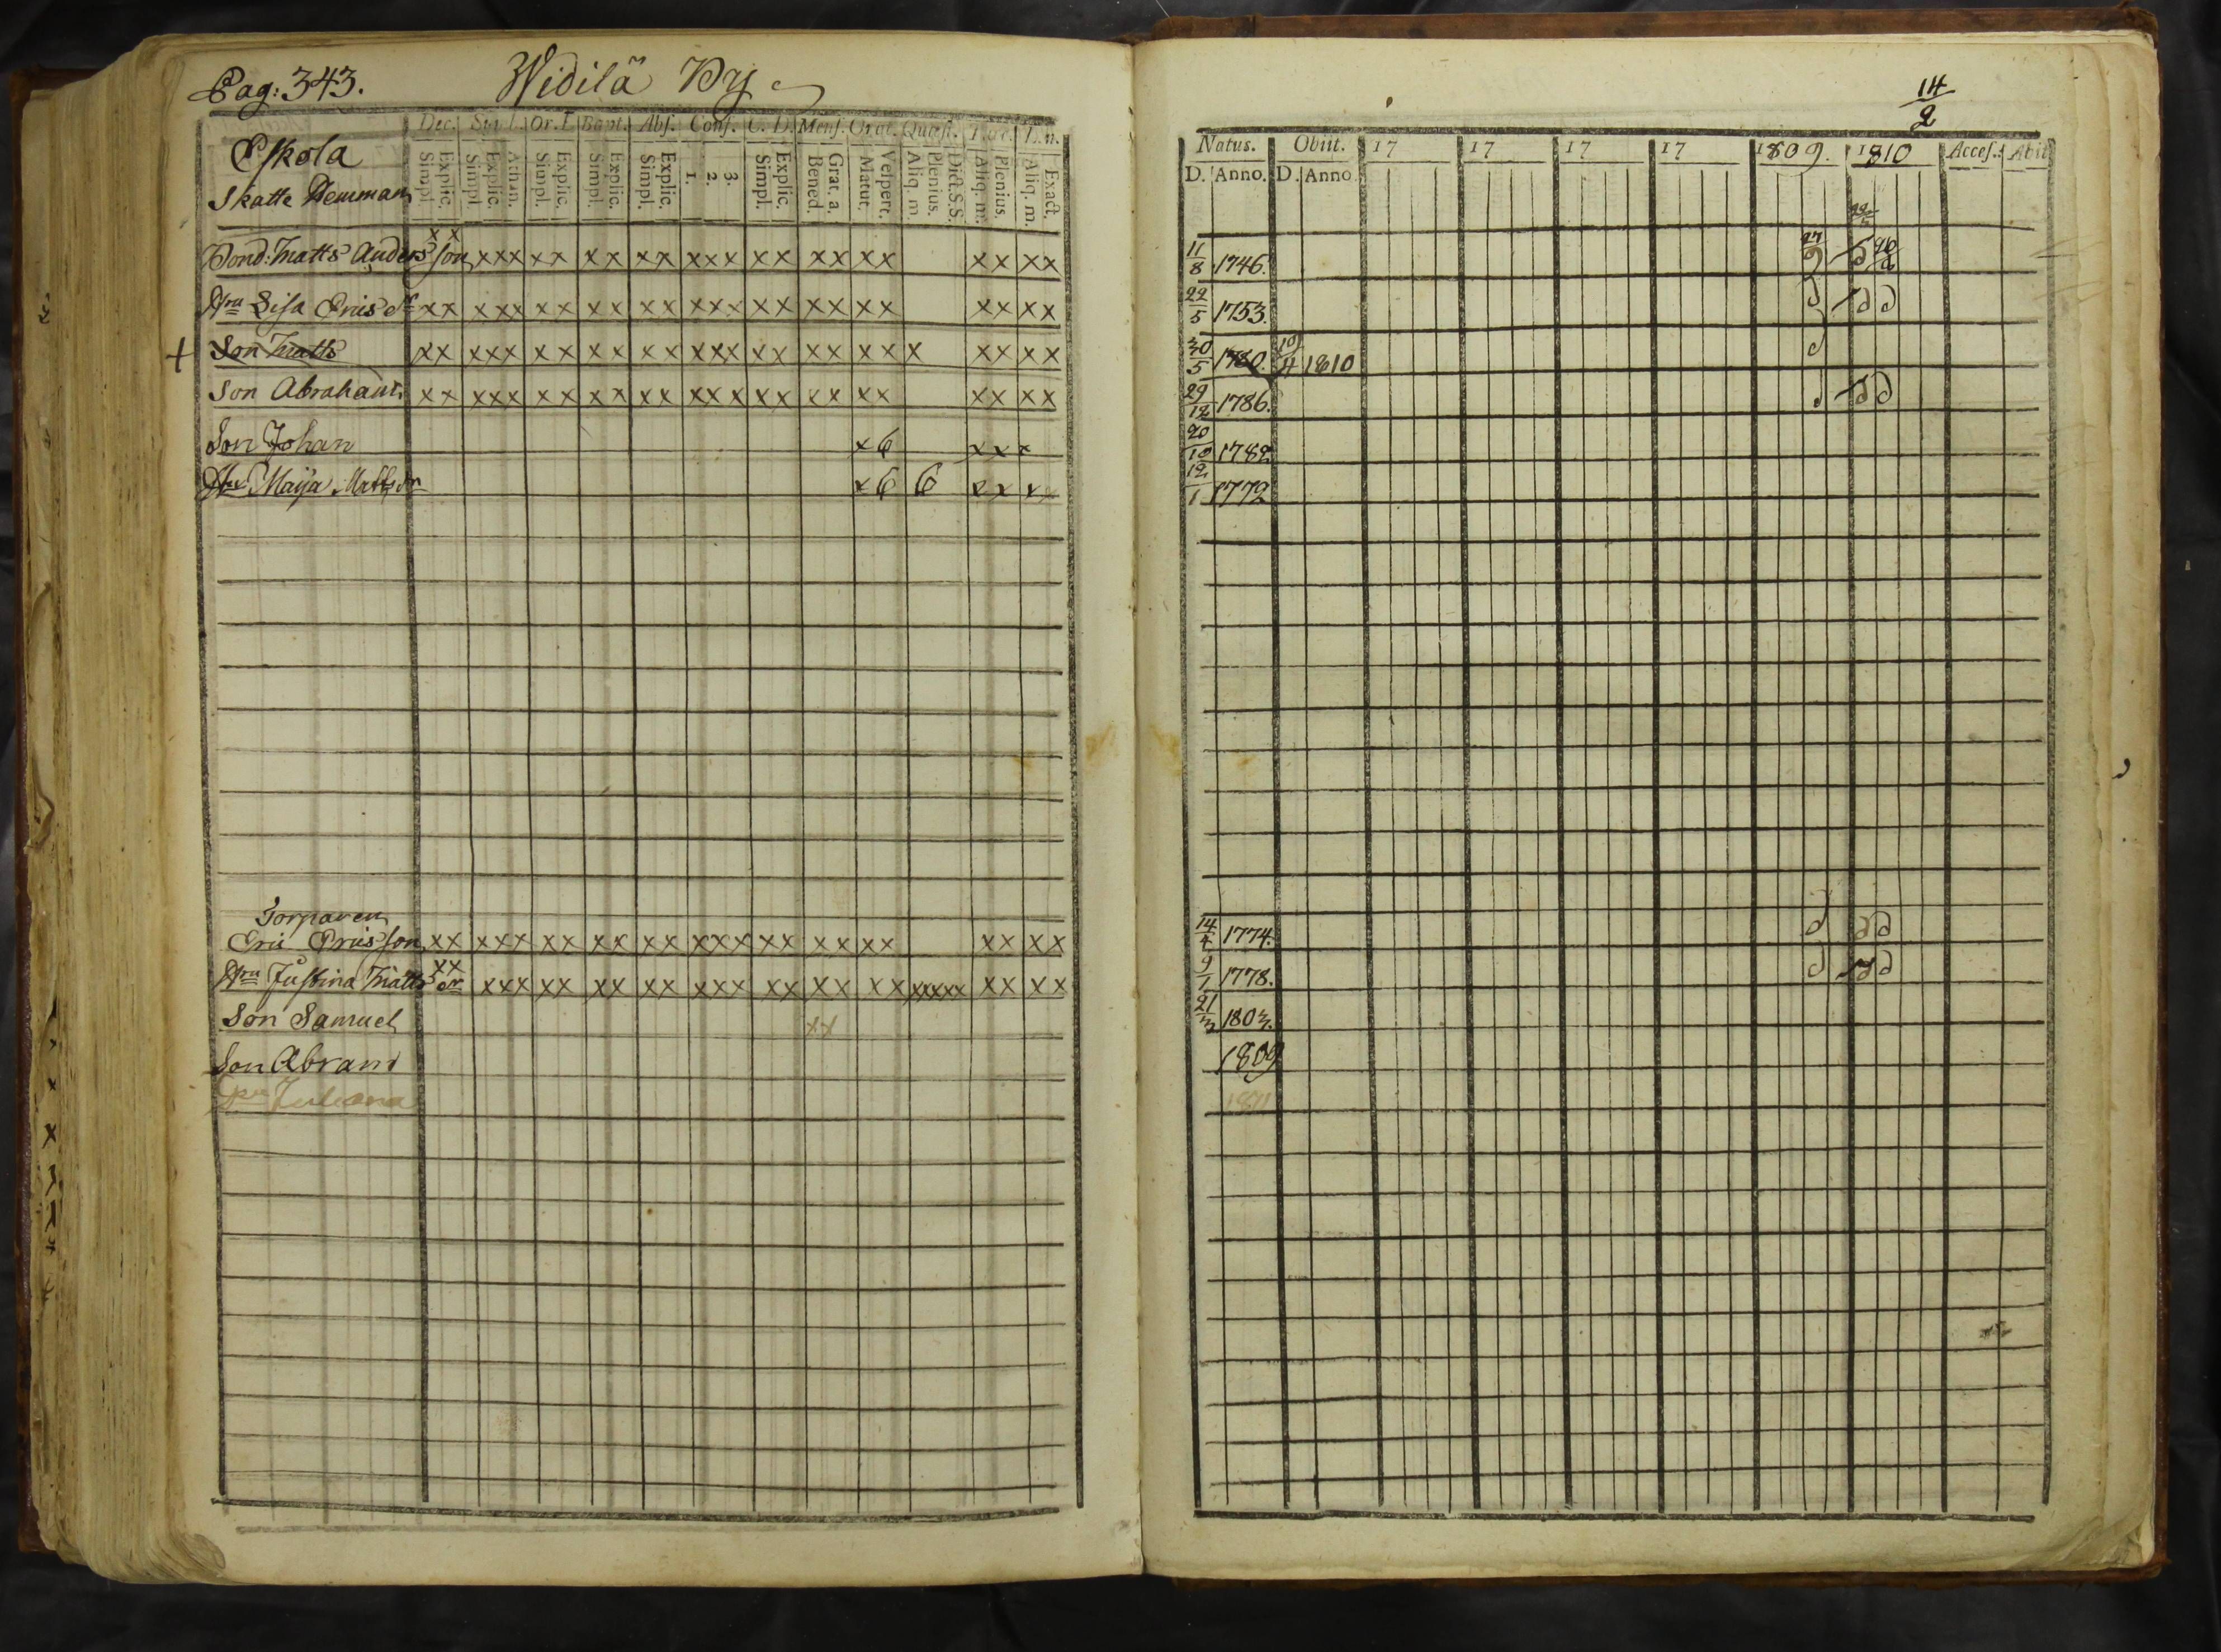 Pag: 343. Widilä By
14
2
Eskola
Skatte Hemman
Dec. Symb. Or. D. Bapt. Abs. Conf. C. D. Mens. Orat. Quæst.
Explic. Simpl. Athan. Explic. Simpl. Explic. Simpl. Explic. Simpl. Explic. Simpl. 3. 2. 1. Explic. Simpl. Grat. a. Bened. Vespert. Matut. Dict. S.S. Plenius. Aliq. m. Plenius. Aliq. m. Exact. Aliq. m.
Natus. Obiit. 17 17 17 17 1809. 1810 Acces. Abit
D. Anno. D. Anno
Bond: Matts Anders son xx xxx xx xx xx xxx xx xx xx xx xx 11/8 1746.
Hru Lisa Erics dr xx xxx xx xx xx xxx xx xx xx xx xx 22/5 1753.
+ Son Matts xx xxx xx xx xx xxx xx xx xx x xx xx 30/5 1780. 10/4 1810
Son Abraham xx xxx xx xx xx xxx xx xx xx xx xx 29/12 1786.
Son Johan x6 xxx 20/10 1782
Hru Maija Matts dr x6 6 xx xx 12/1 1772
Torparen
Eric Ericsson xx xxx xx xx xx xxx xx xx xx xx xx 14/4 1774.
Hru Justina Matts dr xx xxx xx xx xx xxx xx xx xx xxxxx xx xx 9/1 1778.
Son Samuel xx 21/3 1803.
Son Abram 1809
Juliana 1811